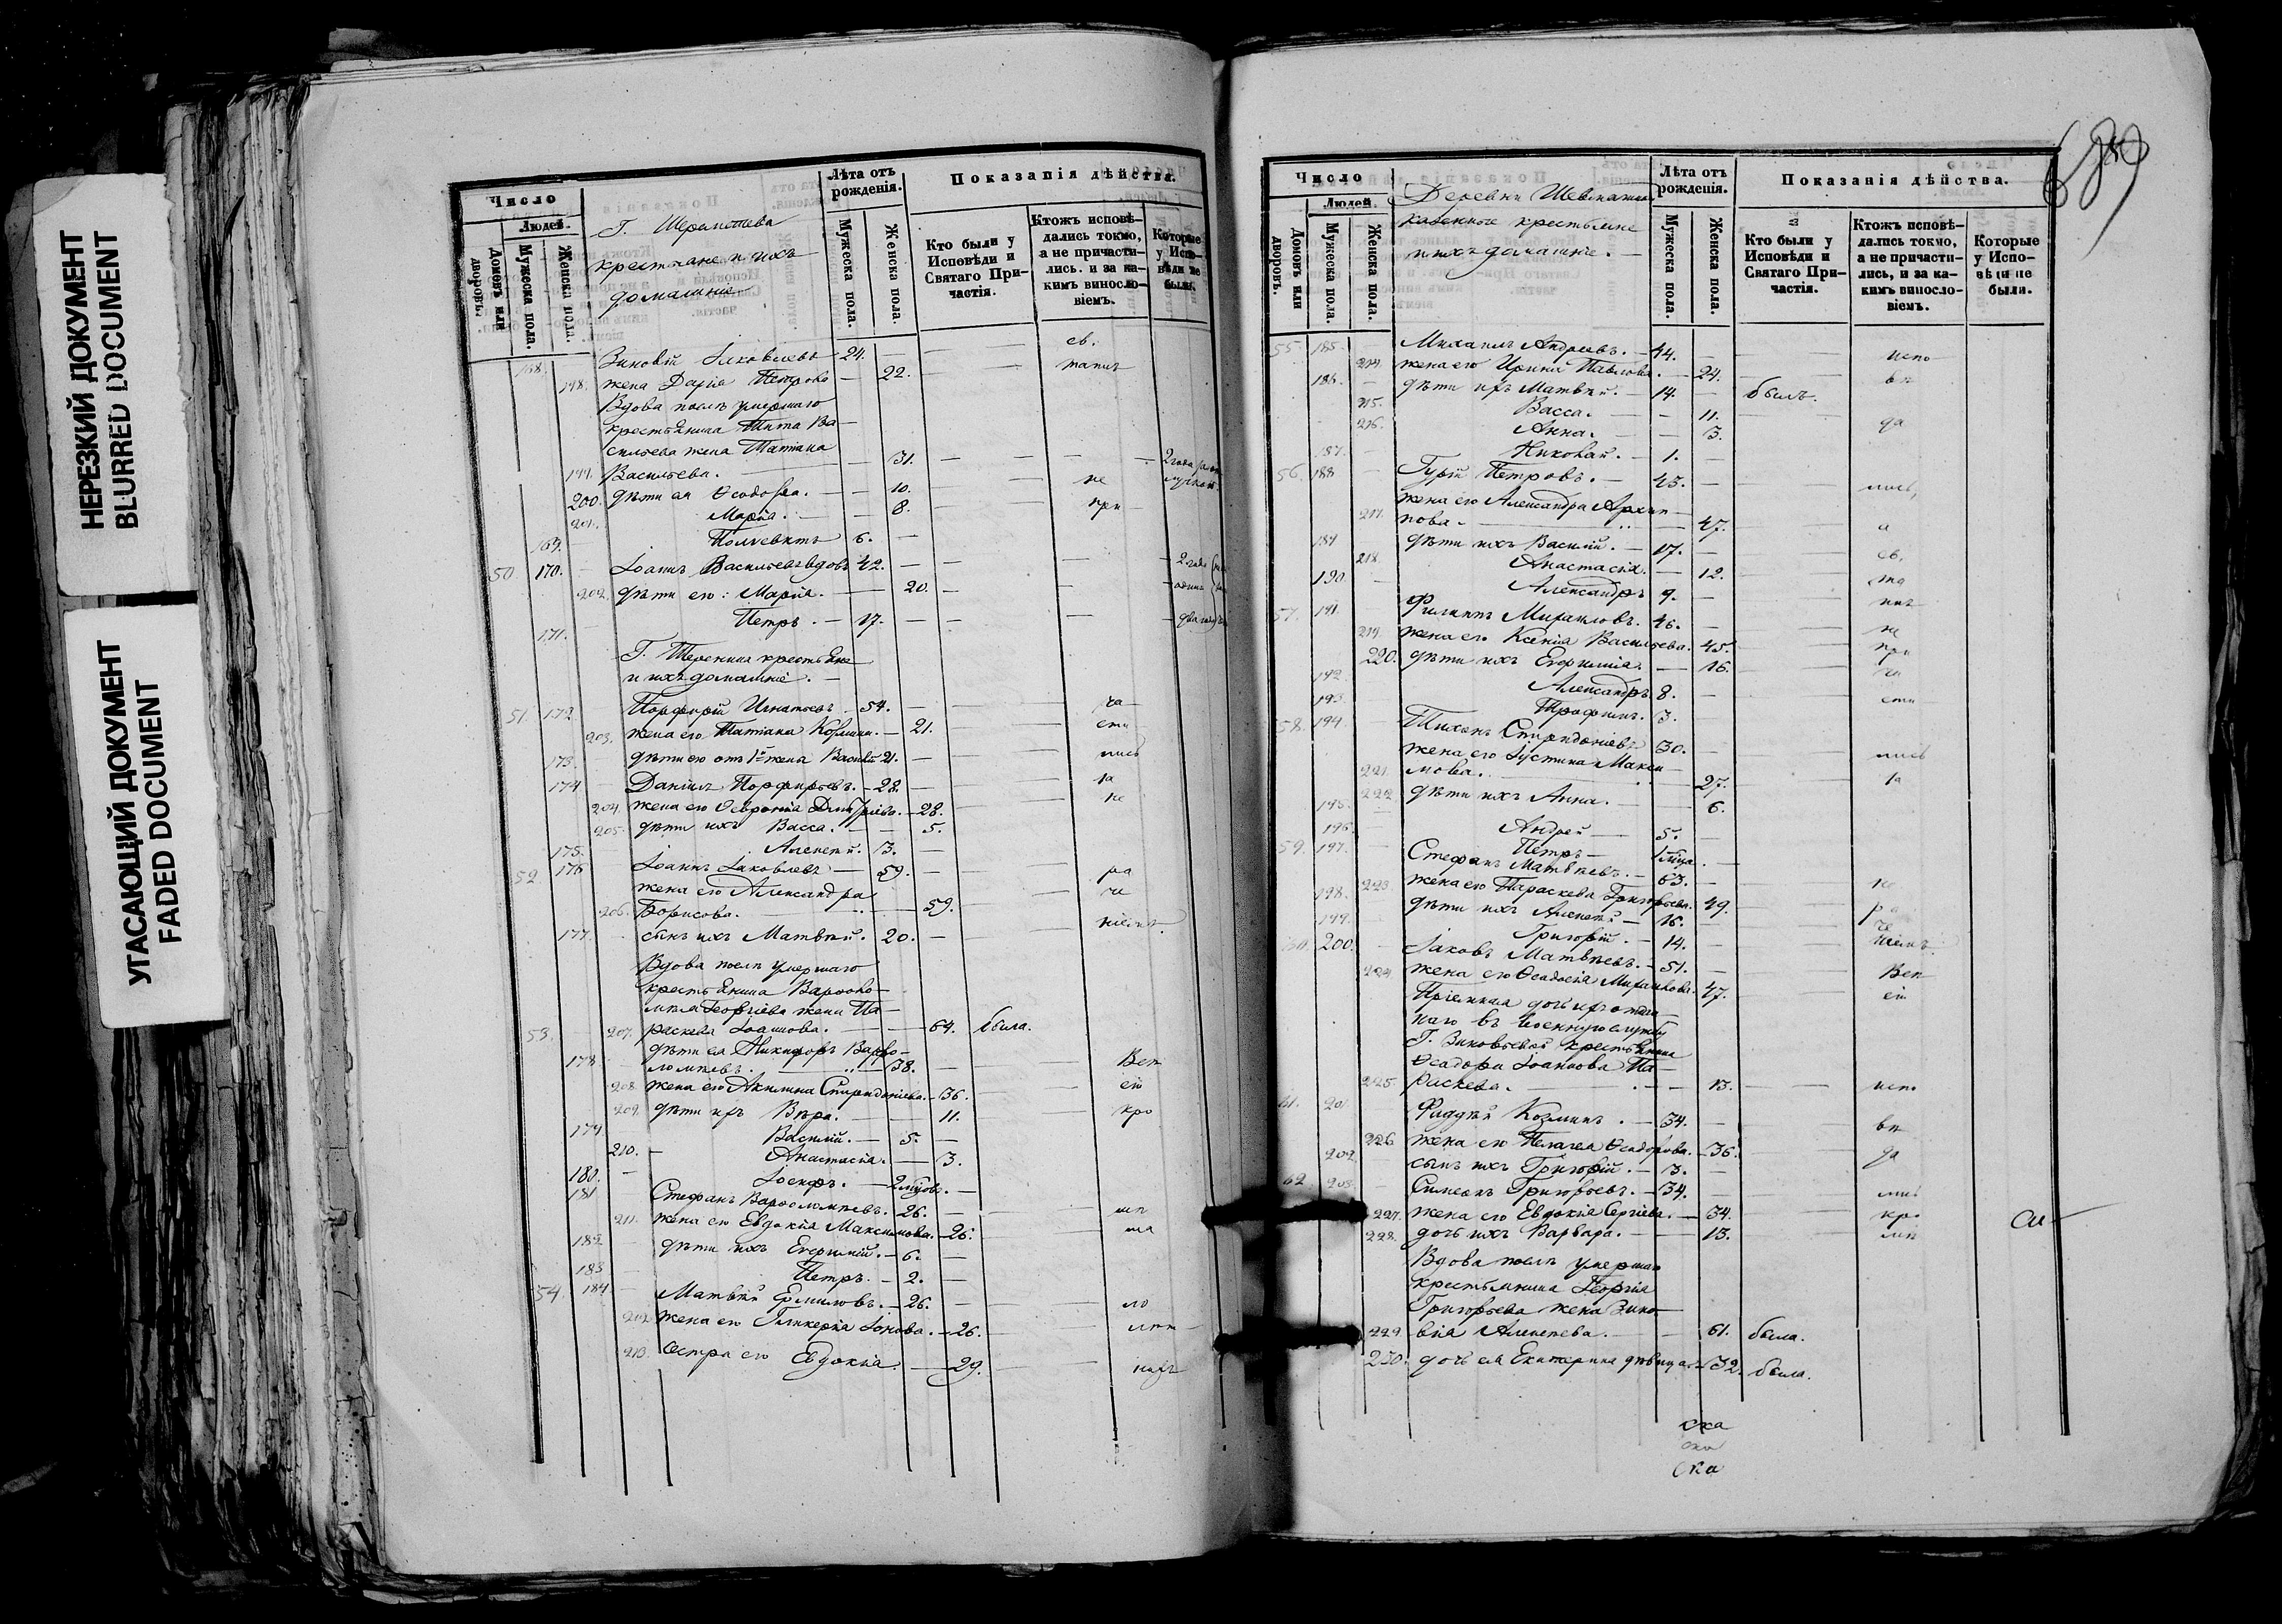 НЕРЕЗКИЙ ДОКУМЕНТ
BLURRED DOCUMENT
УГАСАЮЩИЙ ДОКУМЕНТ
FADED DOCUMENT
Число
Людей.
Домовъ или дворовъ.
Мужеска пола.
Женска пола.
Г. Шереметева
крестьяне и ихъ
домашніе
Лѣта отъ рожденія.
Мужеска пола.
Женска пола.
Показанія дѣйства.
Кто были у Исповѣди и Святаго Причастія.
Ктожъ исповѣдались токмо, а не причастились. и за какимъ винословіемъ.
Которые у Исповѣди не были.
168. Зиновій Іаковлевъ 24. св.
198. жена Дарія Петрова — 22. таинъ
Вдова послѣ умершаго
крестьянина Тита Ва—
сильева жена Татіана
199. Васильева. — 31. 2 года
200. дѣти ея Ѳеодосіа. — 10. не
201. Марія. — 8. при
169. 6.
50. 170. Іоаннъ Васильевъ вдовъ 42. 2 года
202. дѣти его: Марія. — 20.
171. Петръ. — 17.
Г. Теренина крестьяне
и ихъ домашніе.
51. 172. Порфирій Игнатьевъ. 54. ча
203. жена его Татіана Козмина. — 21. сти
173. дѣти его отъ 1й жены Василій 21. лись
174. Даніилъ Порфирьевъ. — 28. за
204. жена его Ѳевронія Димитріева. — 28. не
205. дѣти ихъ Васса. — 5.
175. Алексѣй. 3.
52. 176. Іоаннъ Іаковлевъ — 59. ра
жена его Александра
206. Борисова. — 59. че
177. сынъ ихъ Матвѣй. 20. — ніемъ
Вдова послѣ умершаго
крестьянина Варѳоло—
мѣя Георгіева жена Па—
53. 207. раскева Іоаннова. — 64. была.
дѣти ея Никифоръ Варѳо—
178. ломѣевъ. — 38. Вел
208. жена его Акилина Спиридоніева. — 36. ей
209. дѣти ихъ Вѣра. — 11. кро
179. Василій. — 5.
210. Анастасіа. — 3.
180. Іосифъ. —
181. Стефанъ Варѳоломѣевъ. — 26.
211. жена его Евдокіа Максимова. — 26.
182. дѣти ихъ — 6.
183. Петръ. — 2.
54. 184. Матвѣй Ермиловъ. — 26.
212. жена его Гликеріа Іонова. — 26.
213. Сестра его Евдокіа. — 29.
689
Число
Людей.
Домовъ или дворовъ.
Мужеска пола.
Женска пола.
Деревни
казенные крестьяне
и ихъ домашніе. —
Лѣта отъ рожденія.
Мужеска пола.
Женска пола.
Показанія дѣйства.
Кто были у Исповѣди и Святаго Причастія.
Ктожъ исповѣдались токмо, а не причастились, и за какимъ винословіемъ.
Которые у Исповѣди не были.
55. 185. Михаилъ Андреевъ. — 44. испо
214. жена его Ирина Павлова. — 24. вѣ
186. дѣти ихъ Матвѣй. — 14. былъ.
215. Васса. — 11.
216. Анна. — 3. да
187. Николай. — 1.
56. 188. Гурій Петровъ. — 43. лись,
жена его Александра Архип—
217. пова. — 47. а
189. дѣти ихъ Василій. — 17.
218. Анастасіа. — 12. св.
190. Александръ 9. та
57. 191. Филиппъ Михайловъ. 46. инъ
219. жена его Ксеніа Васильева. 45. не
220. дѣти ихъ — 16. при
192. Александръ 8. ча
193. Трофимъ. 3. сти
58. 194. Тихонъ Спиридоніевъ 30. —
жена его Іустина Макси— лись
221. мова. — 27. за
222. дѣти ихъ Анна. — 6.
195. Андрей — 5.
196. Петръ —
59. 197. Стефанъ Матвѣевъ. — 63.
223. жена его Параскева Григорьева. 49. не
198. дѣти ихъ Алексѣй — 16. ра
199. Григорій. — 14. че
60. 200. Іаковъ Матвѣевъ. — 51. ніемъ
224. жена его Ѳеодосіа Михайлова. 47. Вел
Пріемная дочь ихъ отдан— ей
наго въ военную службу
Г. Зиновьевой крестьянина
Ѳеодора Іоаннова Па—
225. раскева. — 13. испо
61. 201. Фаддѣй Козминъ. — 34. вѣ
226. жена его Пелагея Ѳеодорова. — 36.
202. сынъ ихъ Григорій. — 3. да
62. 203. Симеонъ Григорьевъ. — 34. лись
227. жена его Евдокіа Сергіева. — 34. кро
228. дочь ихъ Варвара. — 13.
Вдова послѣ умершаго
крестьянина Георгіа
Григорьева жена Зино—
229. віа Алексѣева. — 61. была.
230. дочь ея Екатерина дѣвица — 32. была.
ска
ска
ска